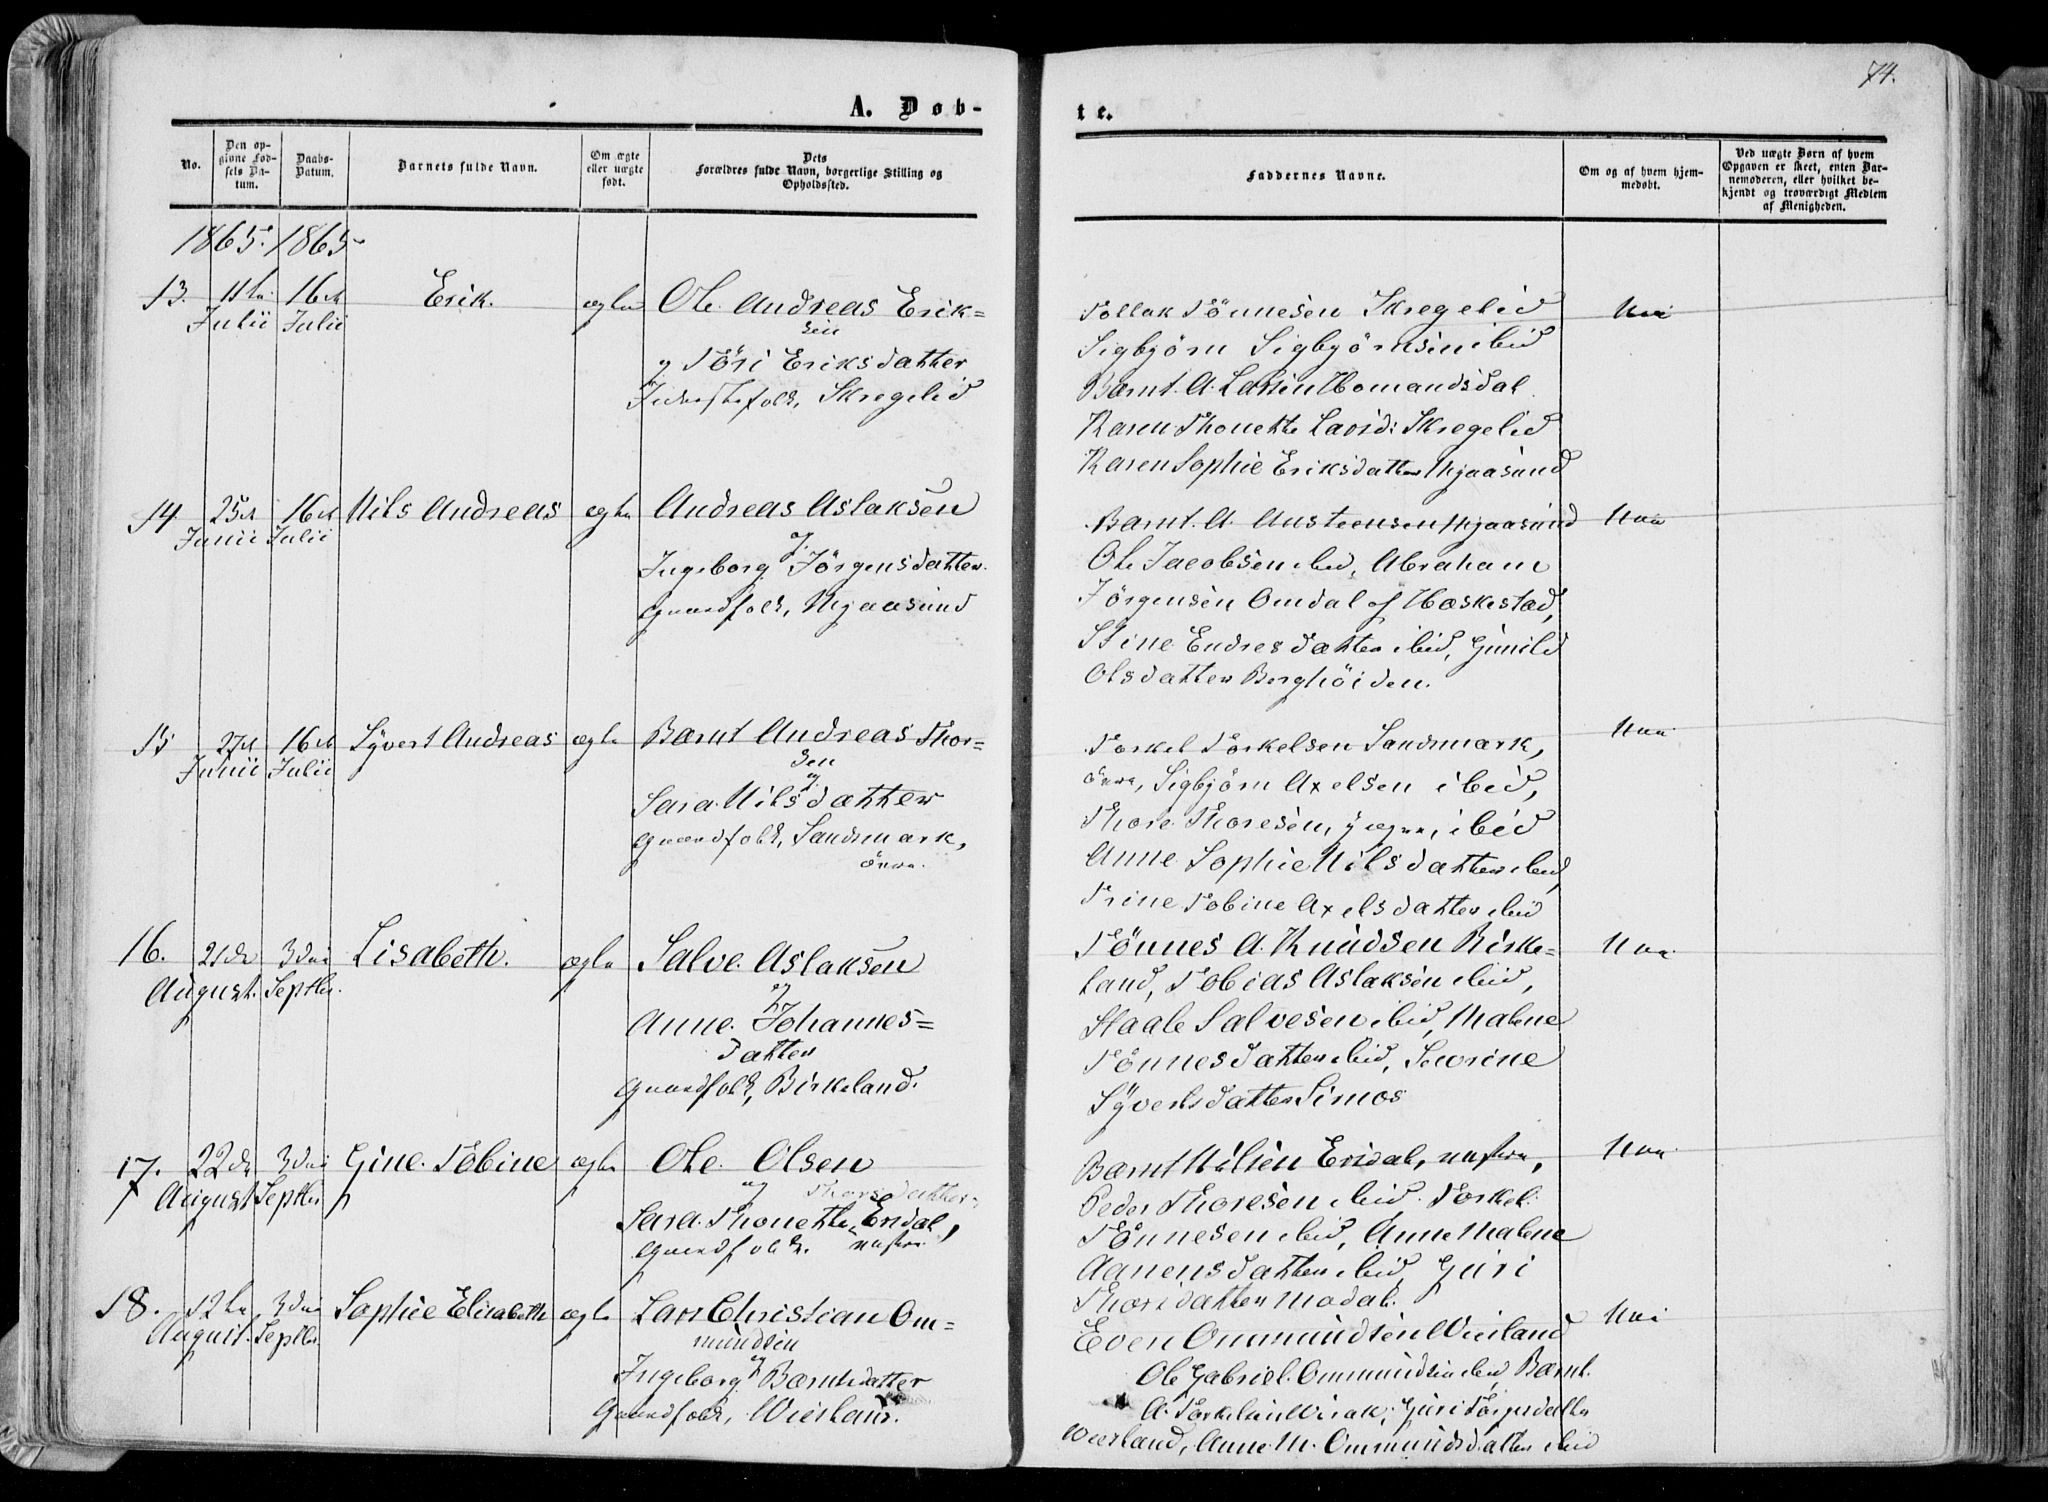 74.
A. Døb-
te.
No.
Den op-
givne Fød-
sels Da-
tum.
Daabs-
Datum.
Barnets fulde Navn.
Om ægte
eller uægte
født.
Dets
Forældres fulde Navn, borgerlige Stilling og
Opholdssted.
Faddernes Navne.
Om og af hvem hjem-
medøbt.
Ved uægte Børn af hvem
Opgaven er skeet, enten Bar-
nemoderen, eller hvilket be-
kjendt og troværdigt Medlem
af Menigheden.
1865. 1865
13. 11te 16de Erik. ægte Ole Andreas Erik=
Julii Julii sen
og Töri Eriksdatter
Inderstefolk, Skregelid
Tollak Tönnesen Skregelid Nei
Sigbjörn Sigbjörnsen ibid
Bernt. A. Larsen Homandsdal
Karen Thonette Larsd: Skregelid
Karen Sophie Eriksdatter Mjaasund
14 25de 16de Nils Andreas ægte Andreas Aslaksen
Junii Julii og
Ingeborg Jörgensdatter
Gaardfolk, Mjaasund
Bernt. A. Austeensen Mjaasund Nei
Ole Jacobsen ibid, Abraham
Jörgensen Omdal af Hæskestad,
Stine Endresdatter ibid, Gunild
Olsdatter Berghöiden.
15 27de 16de Syvert Andreas ægte Bernt Andreas Thor=
Junii Julii sen
og
Sara Nilsdatter
Gaardfolk, Sandsmark,
övre.
Torkel Torkelsen Sandsmark, Nei
övre, Sigbjörn Axelsen ibid,
Thore Thoresen, ibid
Anne Sophie Nilsdatter ibid,
Trine Tobine Axelsdatter ibid
16. 21de 3die Lisabeth. ægte Salve Aslaksen
August. Septbr. og
Anne Johannes=
datter
Gaardfolk, Birkeland.
Tönnes A. Knudsen Birke= Nei
land, Tobias Aslaksen ibid,
Staale Salvesen ibid, Malene
Tönnesdatter ibid, Severine
Syvertsdatter Simos
17. 22de 3die Gine Tobine ægte Ole Olsen
August Septbr og Thorsdatter
Sara Thonette, Eisdal,
Gaardfolk. nestre
Bernt Nilsen Eisdal, nestre, Nei
Peder Thoresen ibid. Torkel
Tönnesen ibid, Anne Malene
Aanensdatter ibid, Guri
Thorsdatter Modal.
18. 12te 3die Sophie Elisabeth ægte Lars Christian Om=
August. Septbr. mundsen
og
Ingeborg Berntsdatter
Gaardfolk, Wiesland.
Even Ommundsen Wiesland Nei
Ole Gabriel Ommundsen ibid, Bernt
A. Torkelsen Virak, Guri Törresdatter
Wiesland, Anne M. Ommundsdatter ibid